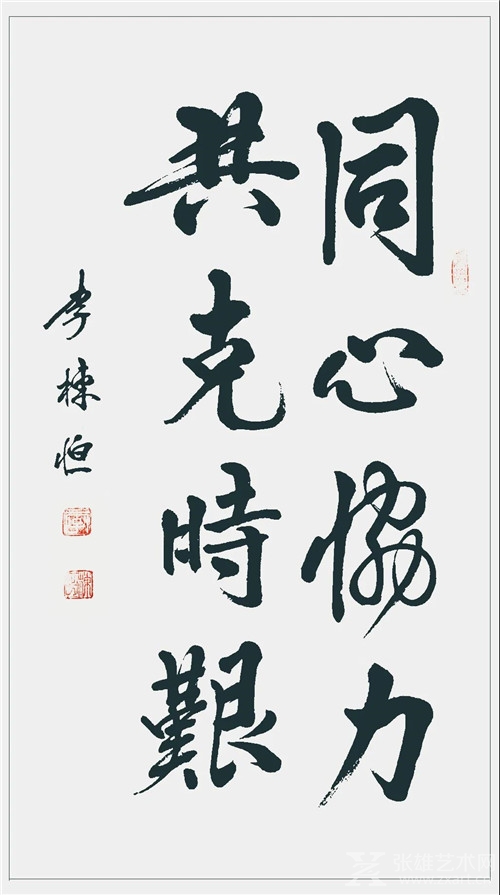 同心恊力
共克時艱
李棟恒
张雄艺术网